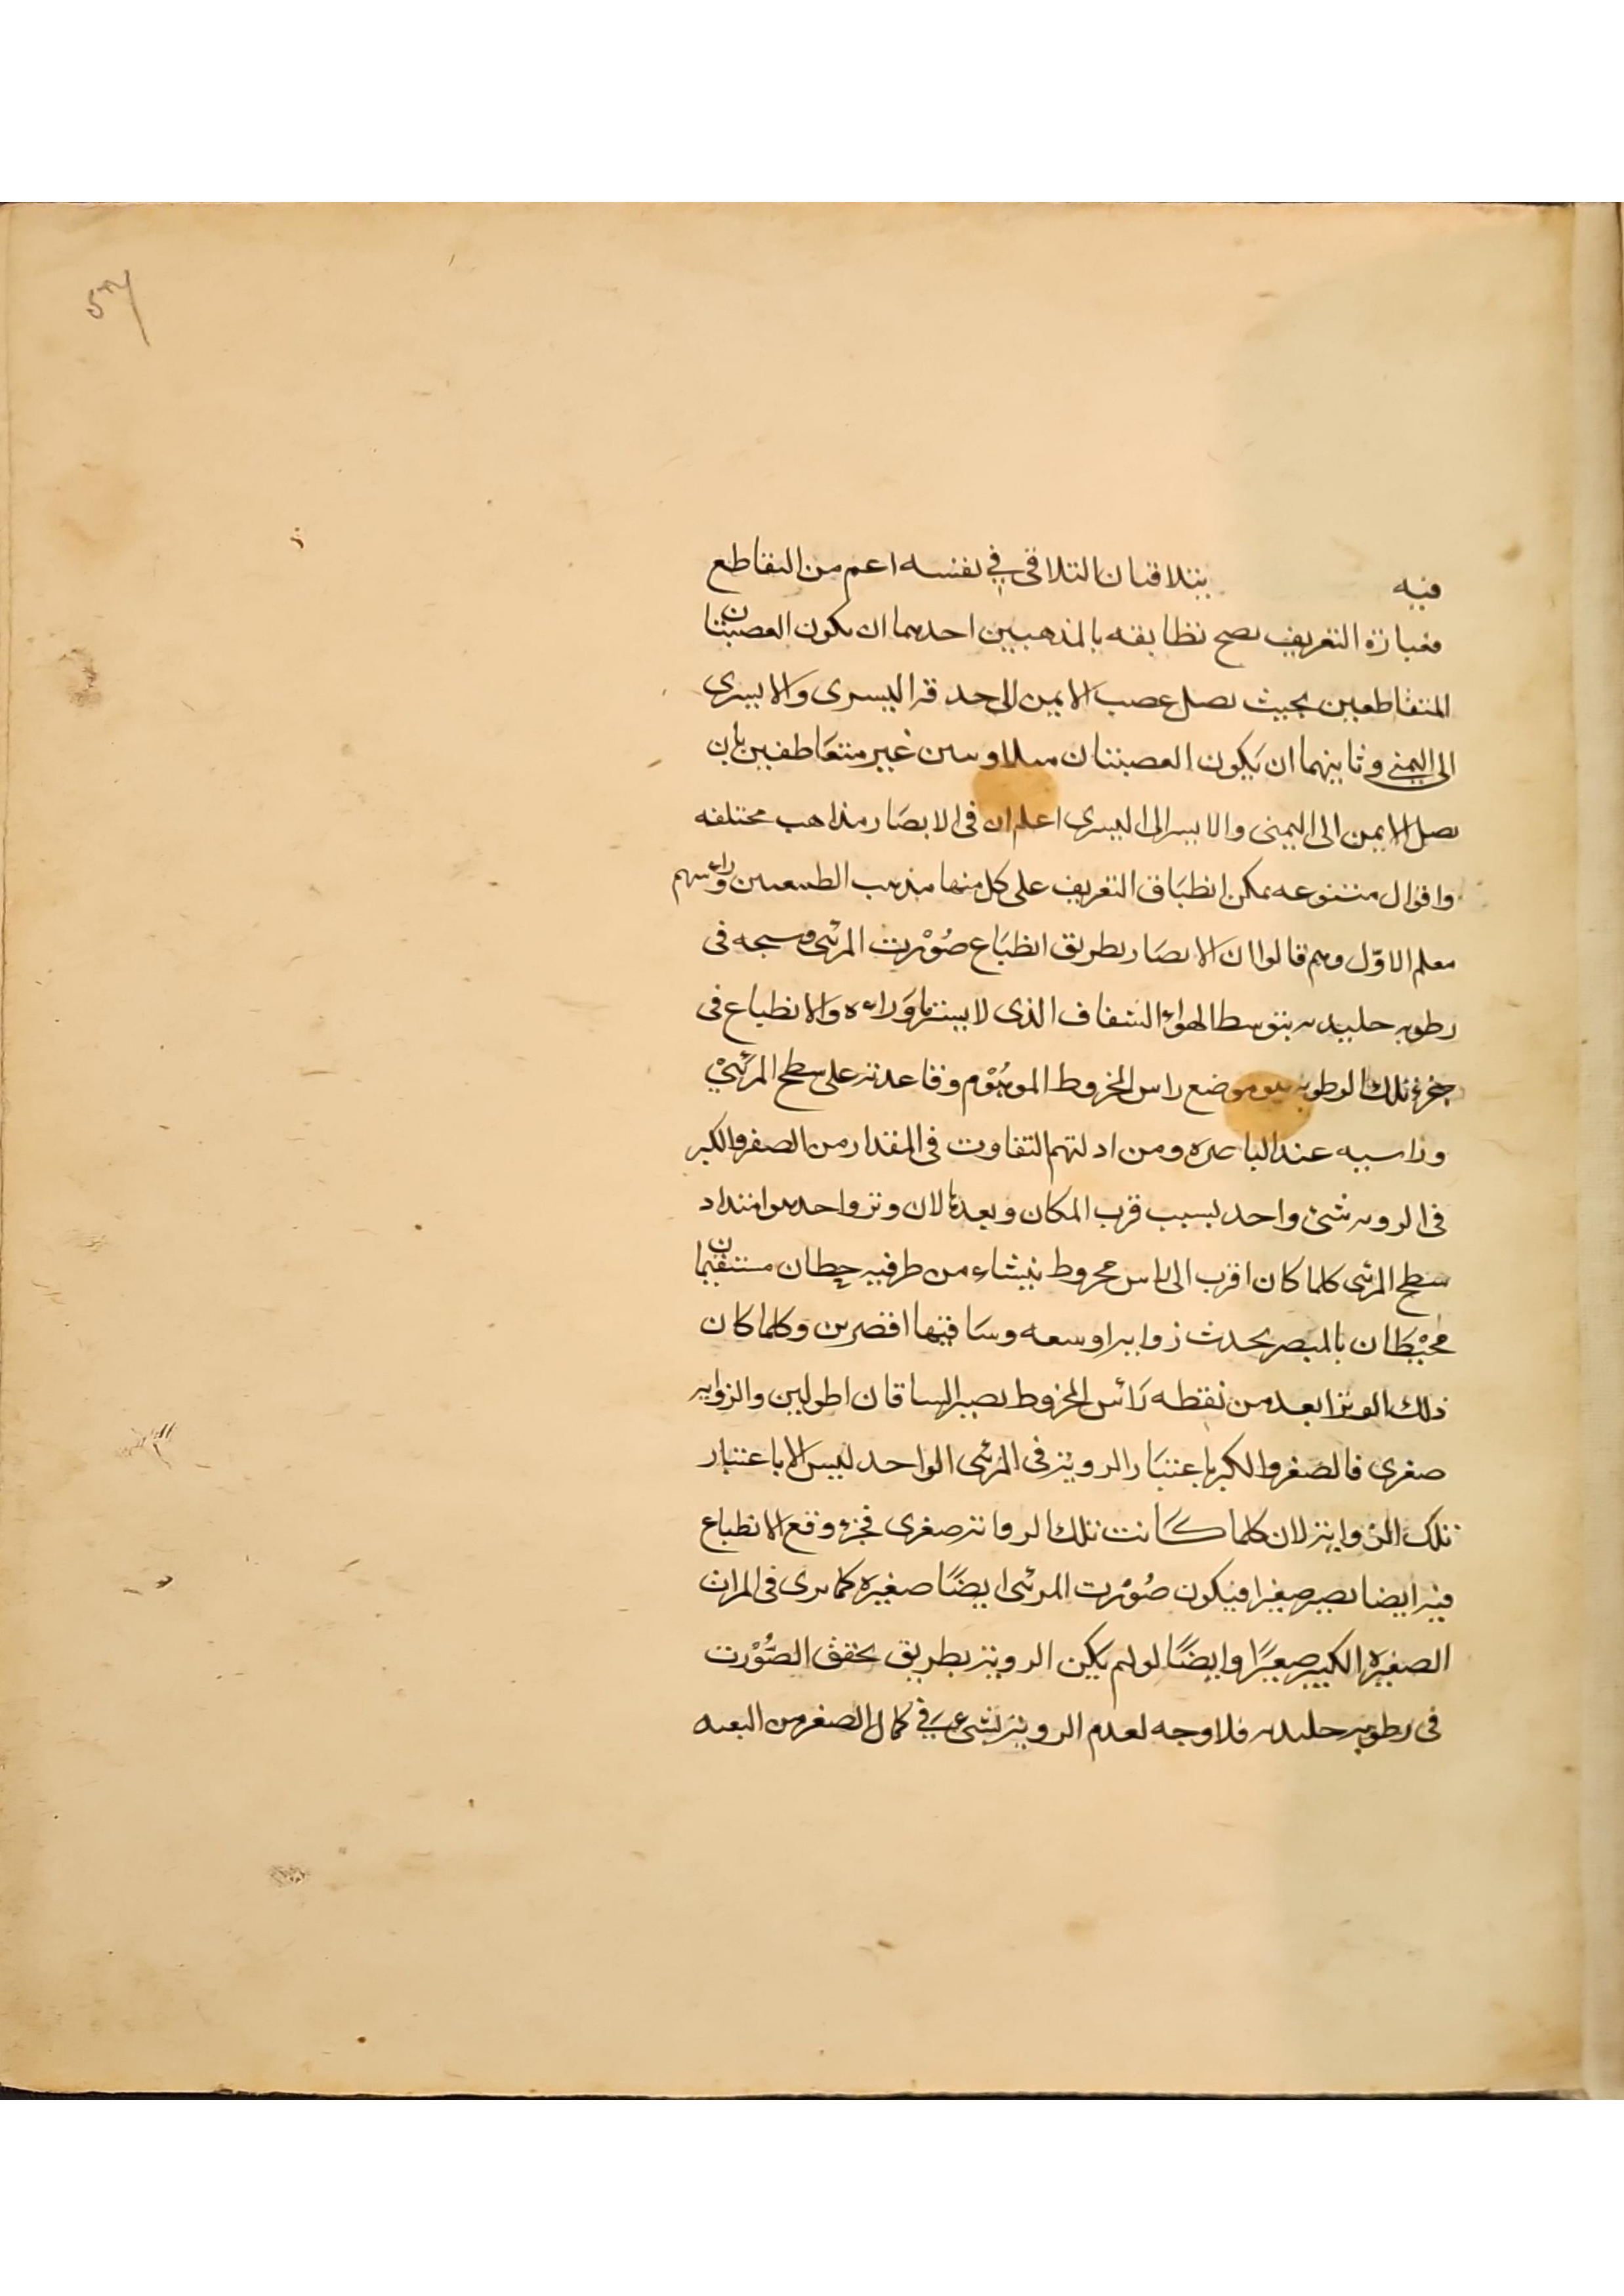 فيه يتلاقيان التلاقى فى نفسه اعم من التقاطع
فعبارة التعريف يصح تطابقه بالمذهبين احدهما ان يكون العصبتان
المتقاطعين بحيث يصل عصب الايمن الى حدقه اليسرى والايسرى
الى اليمنى وثانيهما ان يكون العصبتان غير متعاطفين بان
يصل الايمن الى اليمنى والايسر الى اليسرى اعلم ان فى الابصار مذاهب مختلفه
واقوال متنوعه يمكن انطباق التعريف على كل منها مذهب الطبيعيين وراسهم
معلم الاوّل وهم قالوا ان الابصار بطريق انطباع صُوْرت المرئى وسبحه فى
رطوبه جليديه بتوسط الهواء الشفاف الذى لا يستر ما وَراءه والانطباع فى
جزء تلك الرطوبه هو موضع راس المخروط الموهُوْم وقاعدته على سطح المرئىْ
وراسيه عند الباصره ومن ادلتهم التفاوت فى المقدار من الصغر والكبر
فى الرويه شئ واحد بسبب قرب المكان وبعدها لان وتر واحد هو امتداد
سطح المرئى كلما كان اقرب الى راس مخروط ينشاء من طرفيه خطان مستقيمان
محيْطان بالمبصر يحدث زوايه اوسعه وسَاقيها اقصرين وكلما كان
ذلك الوتر ابعد من نقطه رَأس المخروط يصير الساقان اطولين والزوايه
صغرى فالصغر والكبر باعتبَار الرويته فى المرئى الواحد ليس الا باعتبار
تلك الزوايته لان كلما كَانت تلك الزوايته صغرى فجزء وقع الانطباع
فيه ايضا يصير صغيرا فيكون صُوْرت المرئى ايضًا صغيره كما يرى فى المرات
الصغيره الكبير صغيرًا وايضًا لو لم يكن الرويته بطريق تحقق الصُّوْرت
فى رطوبه جليديه فلا وجه لعدم الرويته لشئ فى كمال الصغر من البعيد